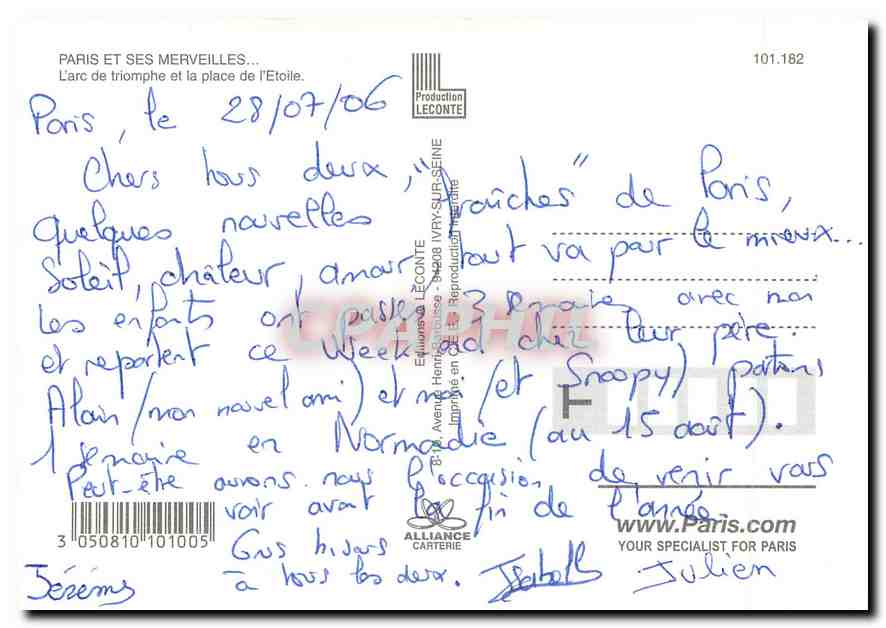 PARIS ET SES MERVEILLES...
L'arc de triomphe et la place de l'Etoile.
101.182
Production
LECONTE
Paris, le 28/07/06
Chers tous deux,
Quelques nouvelles "fraîches" de Paris,
Soleil, châleur, amour, tout va pour le mieux...
Les enfants ont passés 3 semaines avec moi
et repartent ce week end chez leur père.
Alain (mon nouvel ami) et moi (et Snoopy) partons
1 semaine en Normadie (au 15 août).
Peut-être aurons nous l'occasion de venir vous
voir avant la fin de l'année.
Gros bisous
à tous les deux.
Jérémy
Isabelle
Julien
Editions LECONTE
Avenue Henri Barbusse - 94208 IVRY-SUR-SEINE
Imprimé en C.E.E. Reproduction interdite
CPAPHIL
F
3 050810 101005
ALLIANCE
CARTERIE
www.Paris.com
YOUR SPECIALIST FOR PARIS